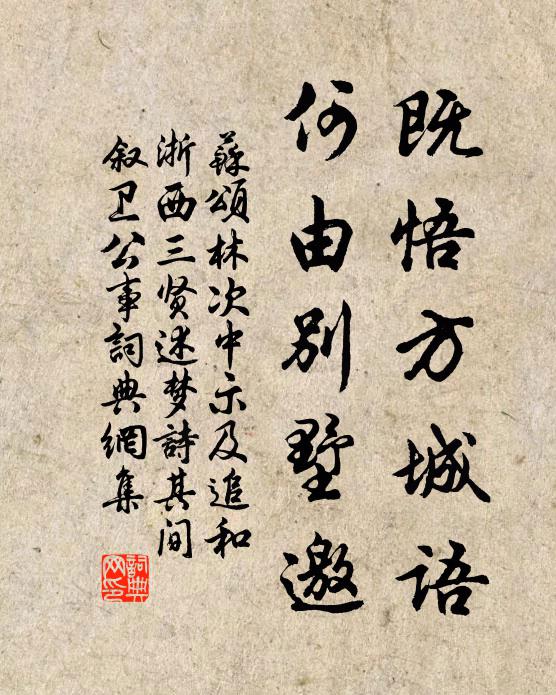 既悟方城语
何由别墅邀
蘇頌林次中示及追和
浙西三贤述梦詩其间
叙卫公事詞典網集
詞典网印